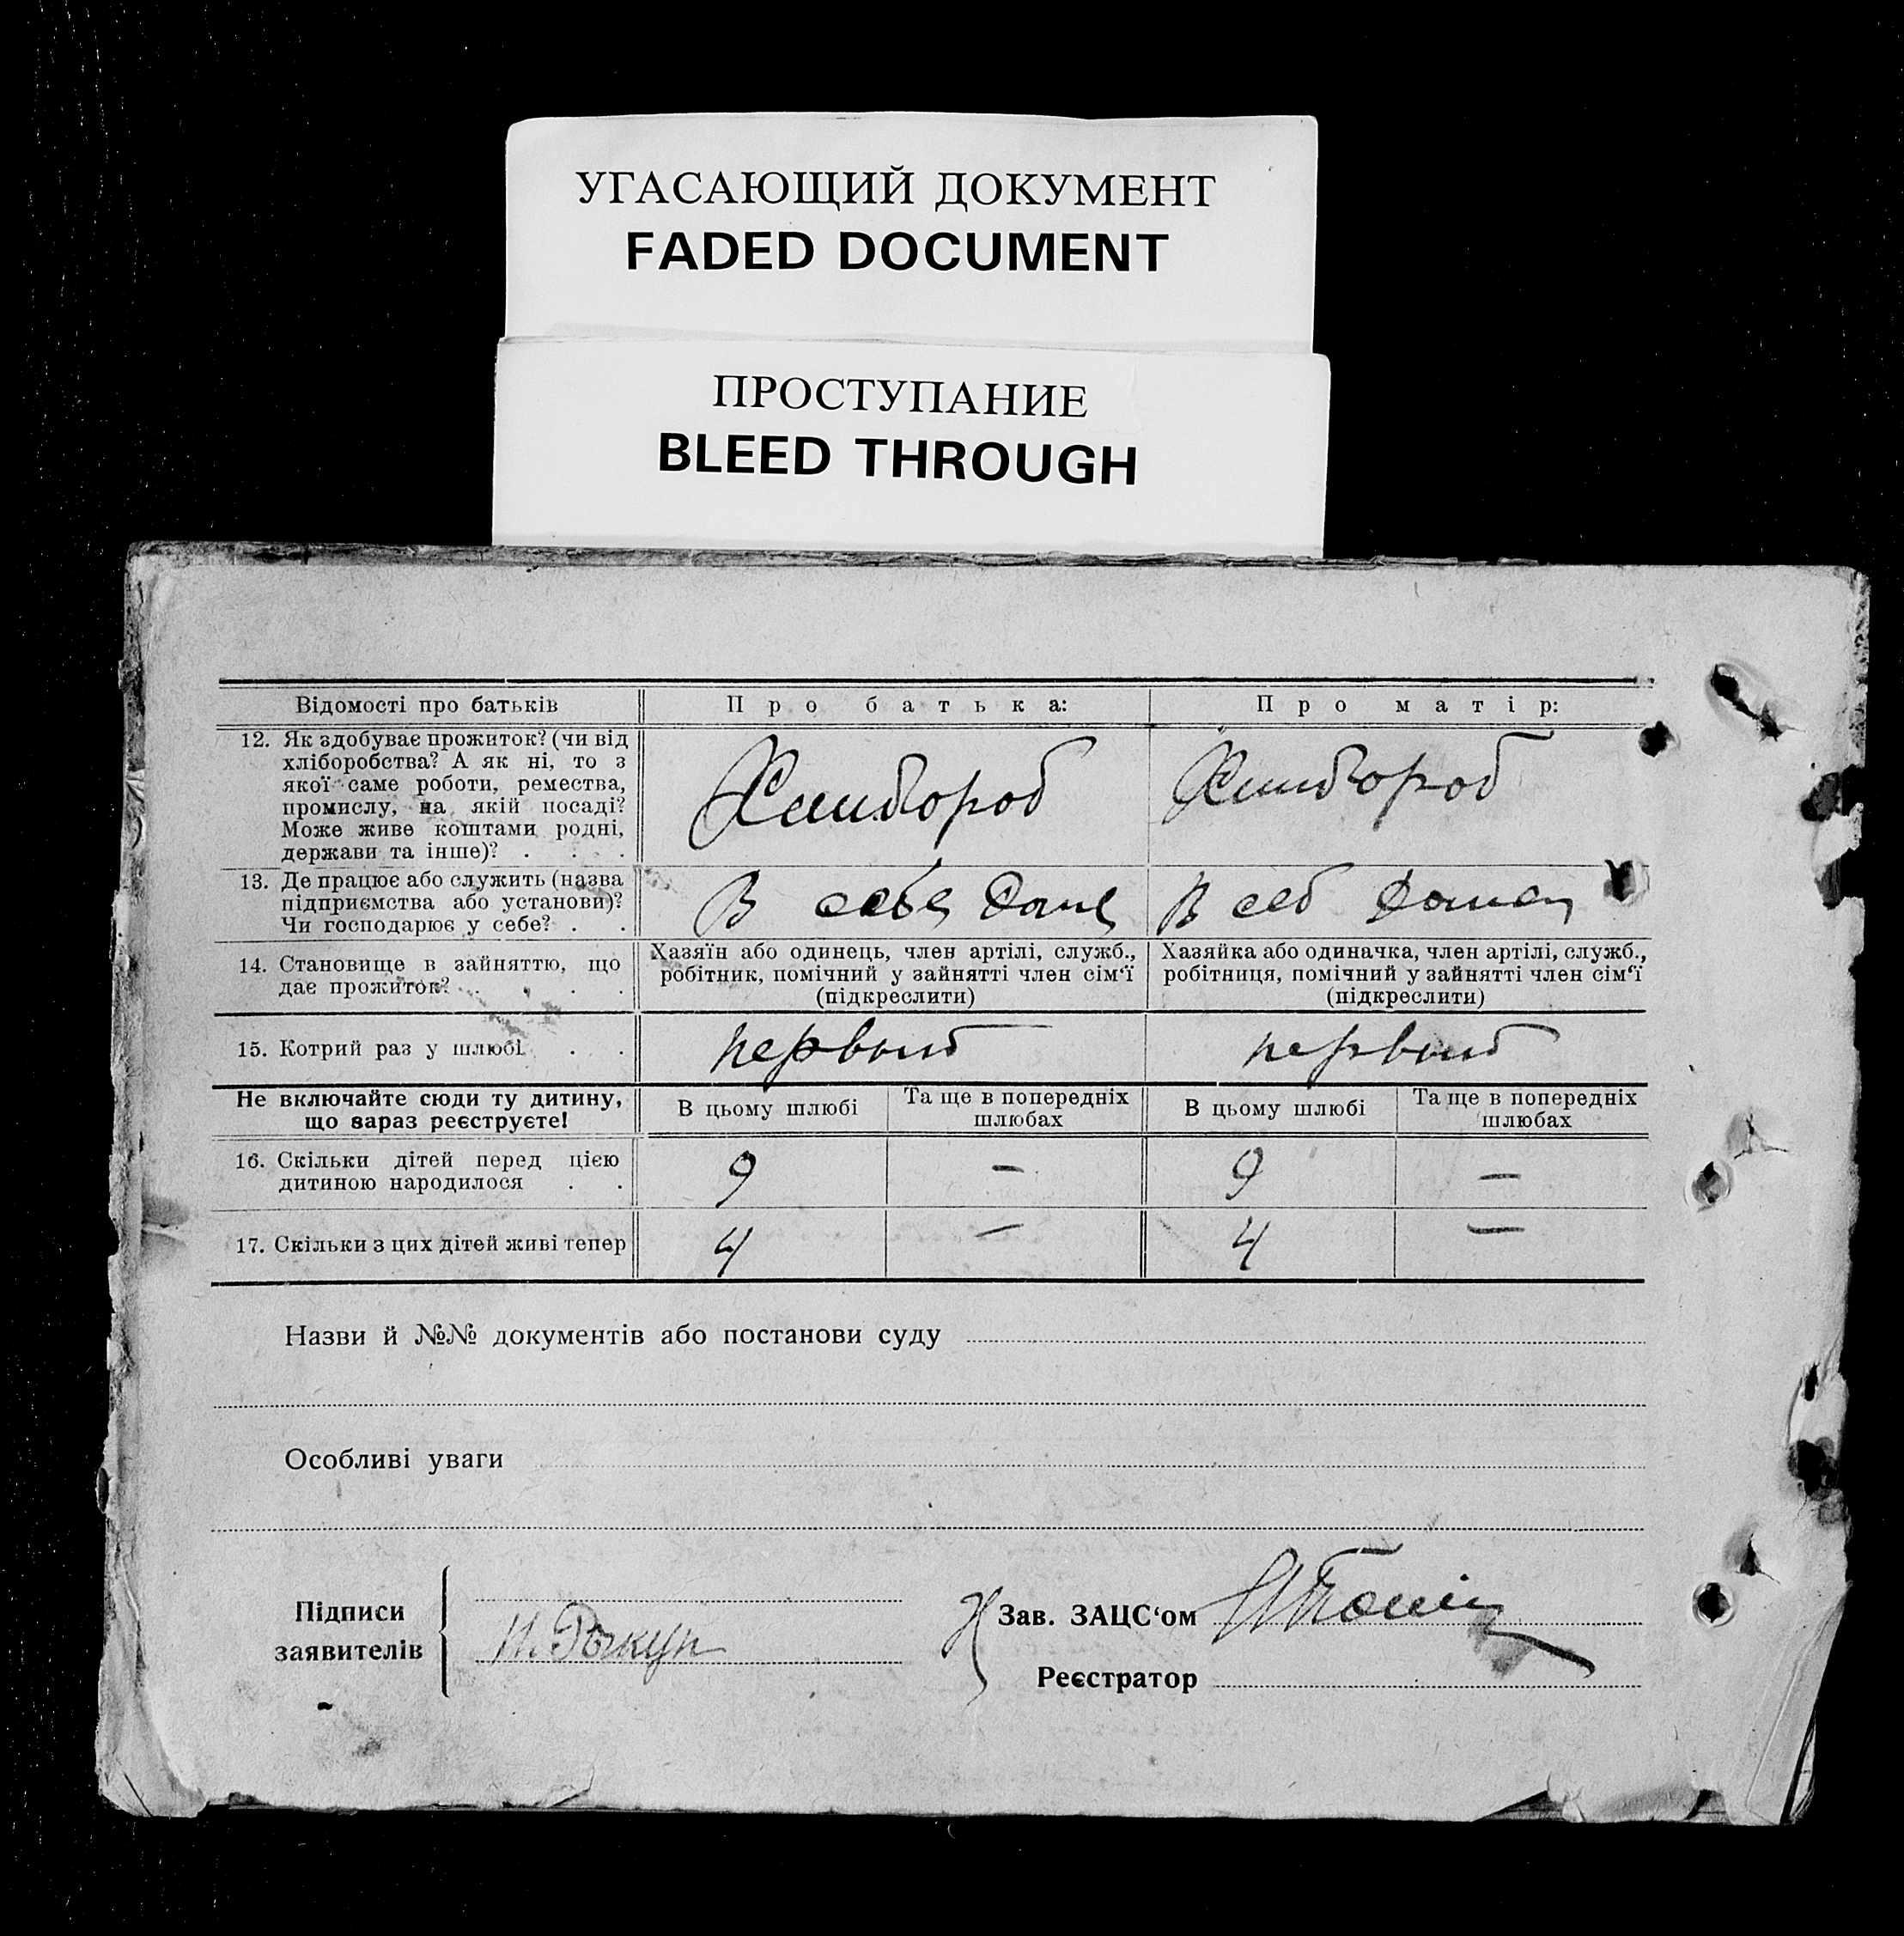 УГАСАЮЩИЙ ДОКУМЕНТ
FADED DOCUMENT
ПРОСТУПАНИЕ
BLEED THROUGH
Відомості про батьків
Про батька:
Про матір:
12. Як здобуває прожиток? (чи від
хліборобства? А як ні, то з
якої саме роботи, ремества,
промислу, на якій посаді?
Може живе коштами родні,
держави та інше)? . . .
13. Де працює або служить (назва
підприємства або установи)?
Чи господарює у себе? . .
В себе доме
В себ
14. Становище в зайняттю, що
дає прожиток? . . . .
Хазяїн або одинець, член артілі, служб.,
робітник, помічний у зайнятті член сім'ї
(підкреслити)
Хазяйка або одиначка, член артілі, служб.,
робітниця, помічний у зайнятті член сім'ї
(підкреслити)
15. Котрий раз у шлюбі . .
первый
первый
Не включайте сюди ту дитину,
що зараз реєструєте!
В цьому шлюбі
Та ще в попередніх
шлюбах
В цьому шлюбі
Та ще в попередніх
шлюбах
16. Скільки дітей перед цією
дитиною народилося . .
9
—
9
—
17. Скільки з цих дітей живі тепер
4
—
4
—
Назви й №№ документів або постанови суду
Особливі уваги
Підписи
заявителів
Зав. ЗАЦС'ом
Реєстратор